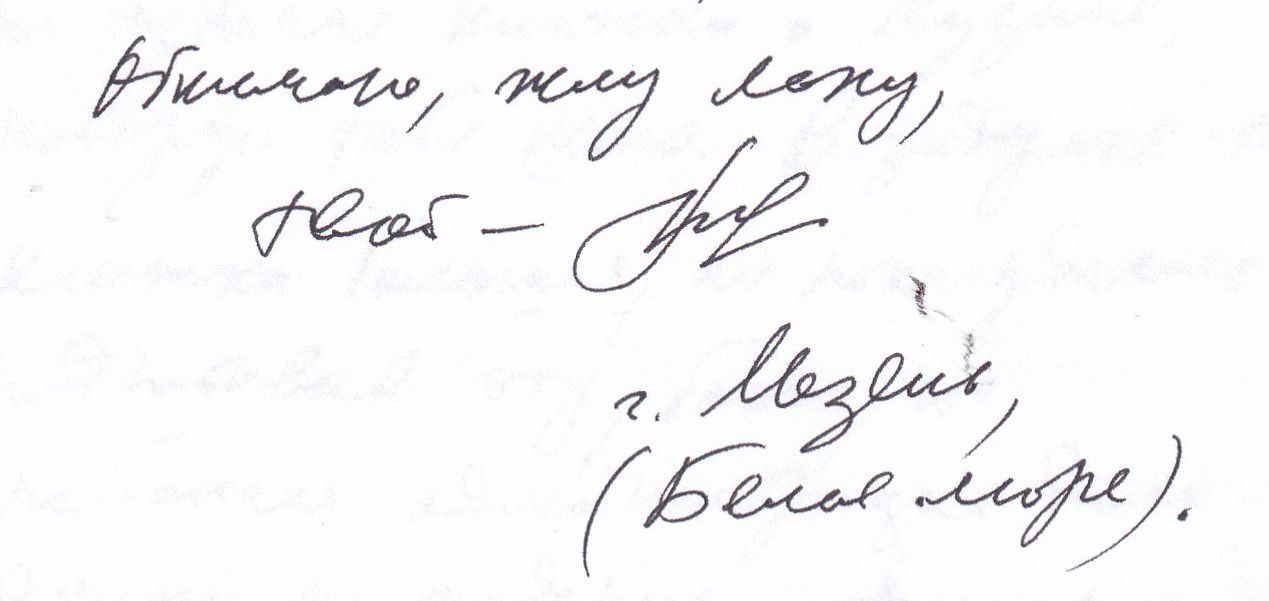 Обнимаю, жму лапу,
твой —
г. Мезень,
(Белое море).